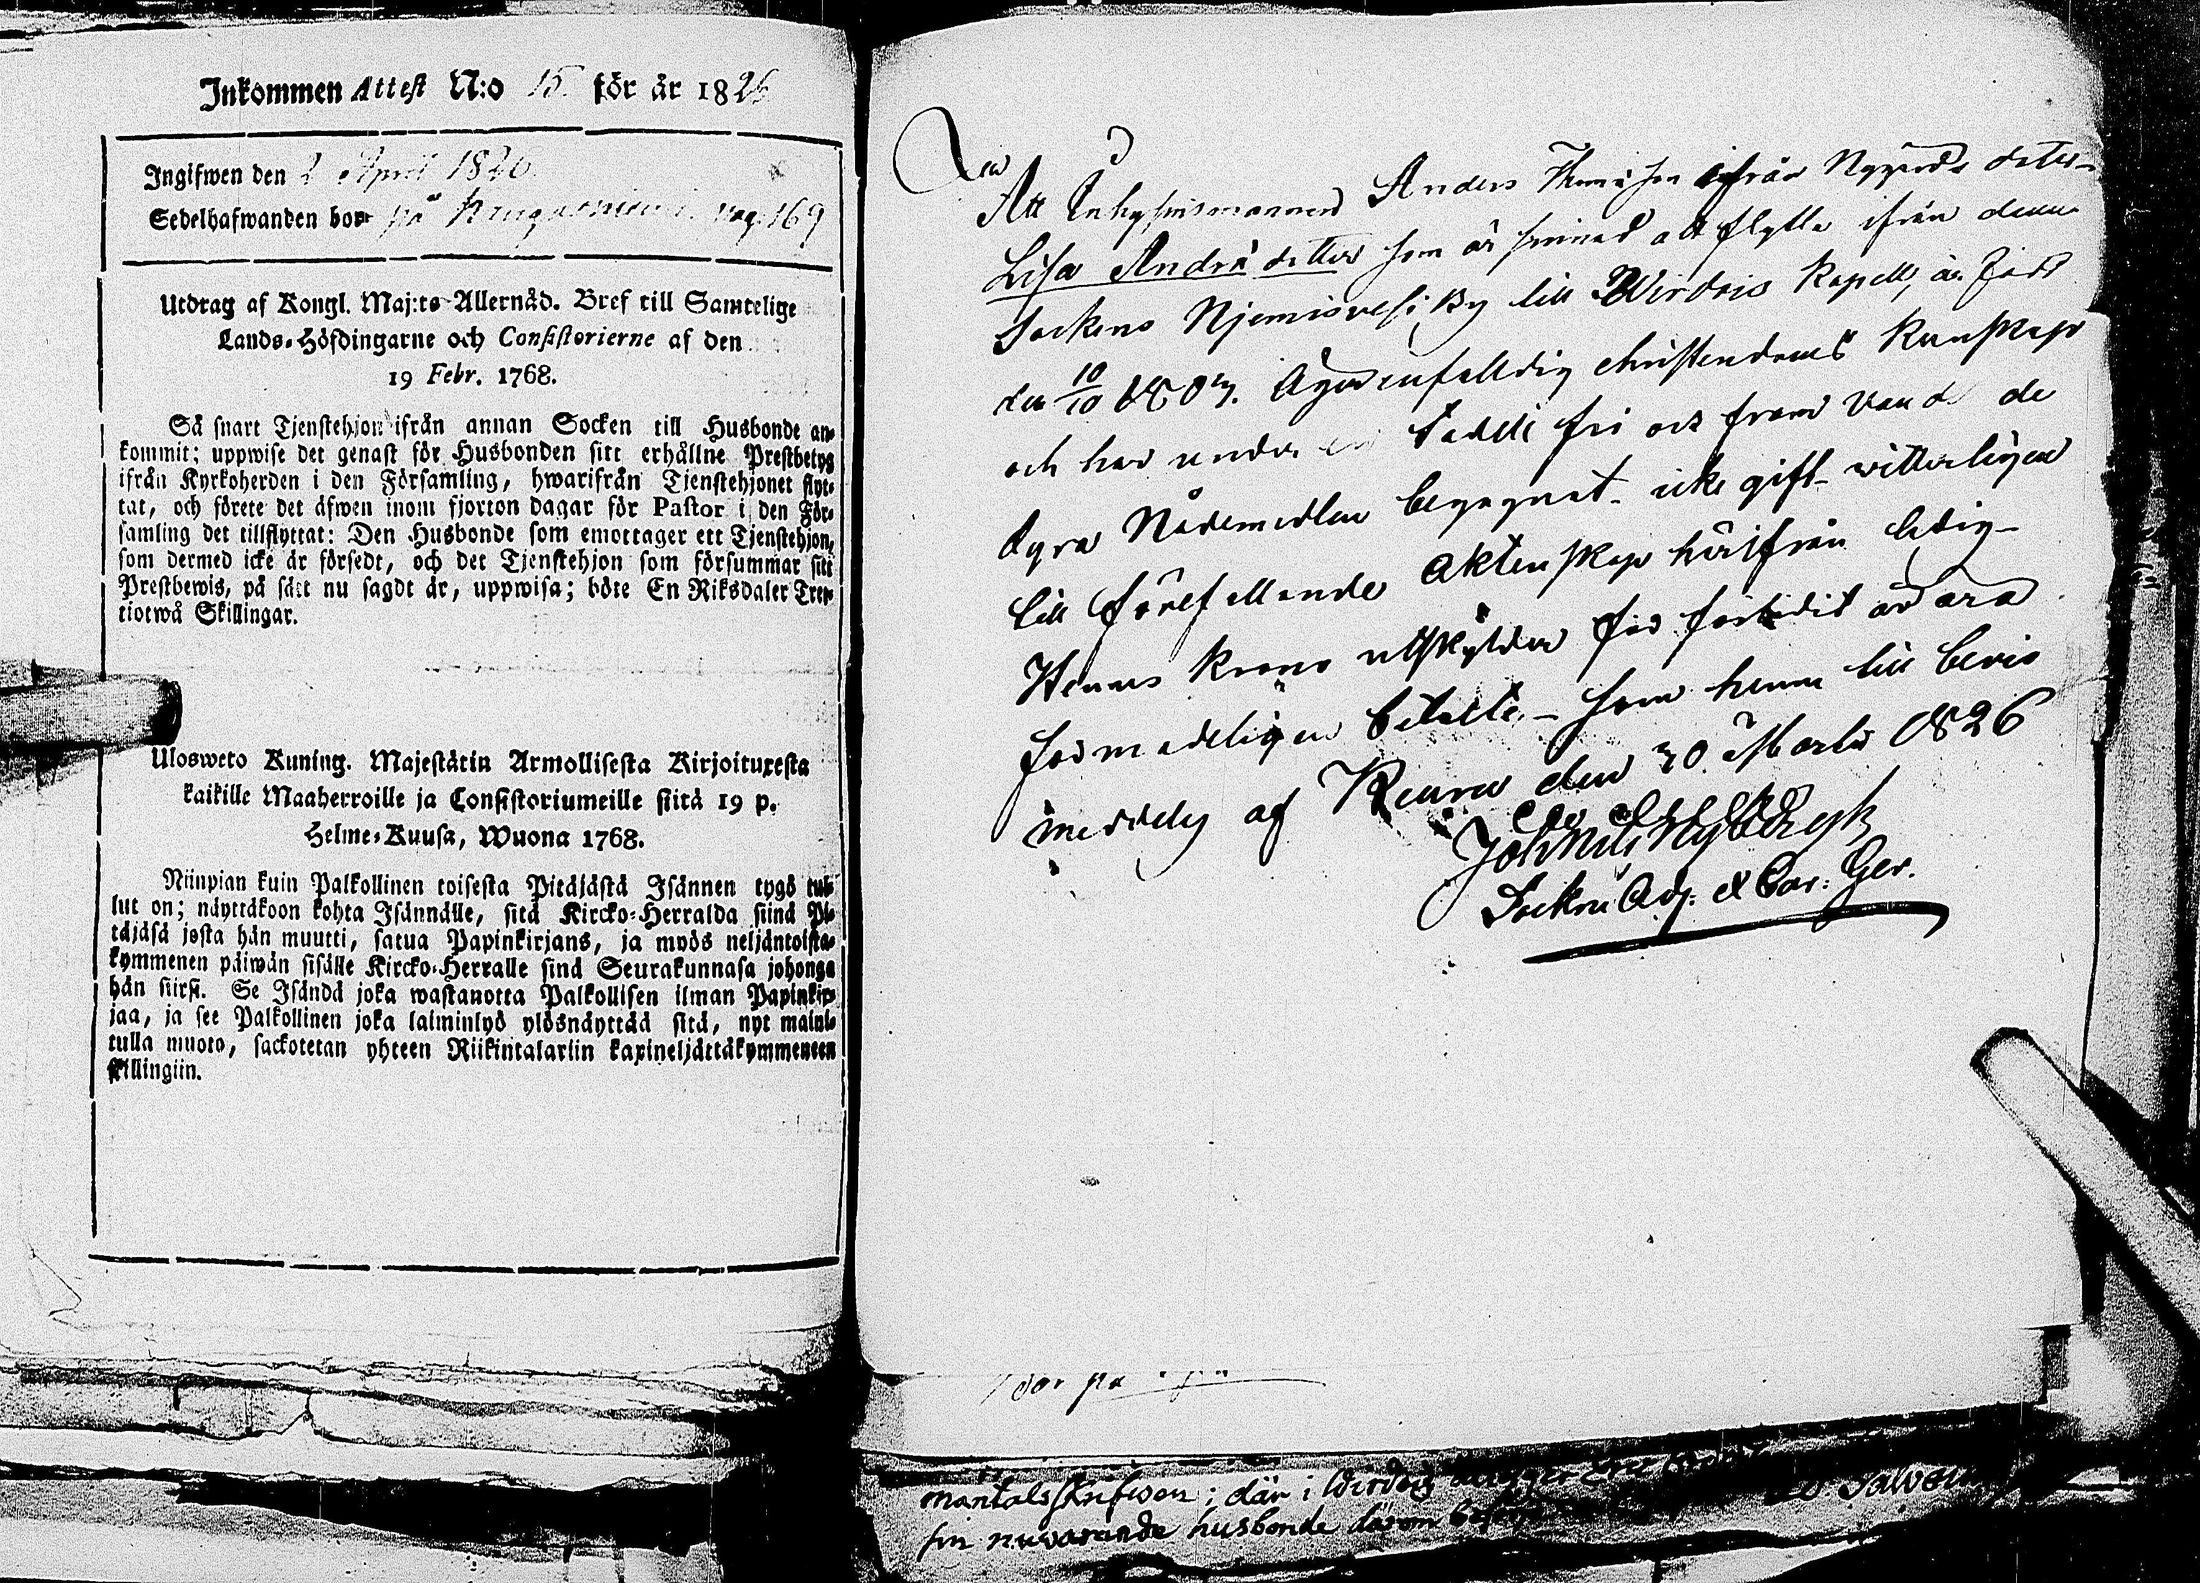 Inkommen Attest N:o 15. för år 1826
Ingifwen den 2 April 1826.
Sedelhafwanden bor på pag. 169
Utdrag af Kongl. Maj:ts Allernåd. Bref till Samtelige
Lands-Höfdingarne och Consistorierne af den
19 Febr. 1768.
Så snart Tjenstehjon ifrån annan Socken till Husbonde an-
kommit; uppwise det genast för Husbonden sitt erhållne Prestbetyg
ifrån Kyrkoherden i den Församling, hwarifrån Tjenstehjonet flyt-
tat, och förete det äfwen inom fjorton dagar för Pastor i den För-
samling det tillflyttat: Den Husbonde som emottager ett Tjenstehjon,
som dermed icke är försedt, och det Tjenstehjon som försummar sitt
Prestbewis, på sätt nu sagdt är, uppwisa; böte En Riksdaler Tret-
tiotwå Skillingar.
Ulosweto Kuning. Majestätin Armollisesta Kirjoituxesta
kaikille Maaherroille ja Consistoriumeille siitä 19 p.
Helme-Kuusa, Wuona 1768.
Niinpian kuin Palkollinen toisesta Pitäjästä Isännen tygö tul-
lut on; näyttäkoon kohta Isännälle, sitä Kircko-Herralda siinä Pi-
täjäsä josta hän muutti, saatua Papinkirjans, ja myös neljäntoista-
kymmenen päiwän sisälle Kircko-Herralle sinä Seurakunnasa johonga
hän siirsi. Se Isändä joka wastanotta Palkollisen ilman Papinkir-
jaa, ja see Palkollinen joka laiminlyö ylösnäyttää sitä, nyt maini-
tulla muoto, sackotetan yhteen Riikintalariin kaxineljättäkymmeneen
skillingiin.
Att Inhysesmannen Anders Thomasson ifrån Nygårds dotter
Lisa Andrsdotter som är sinnad att flytta ifrån denna
Sockens Njemisvesi By till Wirdois Kapell, är född
den 10/10 1803. Äger enfalldig christendoms kunskap
och har under tadde fri och främ de
dyra Nådemedlen begagnat icke gift witterligen
till förefallande äktenskap härifrån ledig
Hennes krono utskylder för förtidit år ära
förmodeligen betalte som henne till bevis
meddelas af Keuru den 30 Martii 1826
Joh Nils Nyberg
Sockne Adj. & Cur: Ger.
mantalsskrifwen; där i Wirdois
sin nuvarande husbonde därom